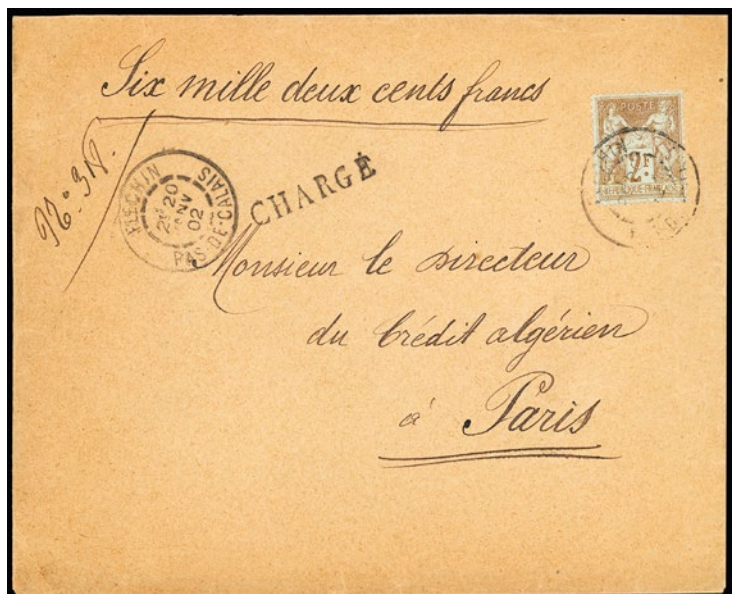 Six mille deux cents francs
POSTE
2F
REPUBLIQUE FRANC
No 318.
FLECHIN
2E 20
JANV
02
PAS-DE-CALAIS
CHARGÉ
Monsieur le Directeur
du Crédit algérien
à Paris